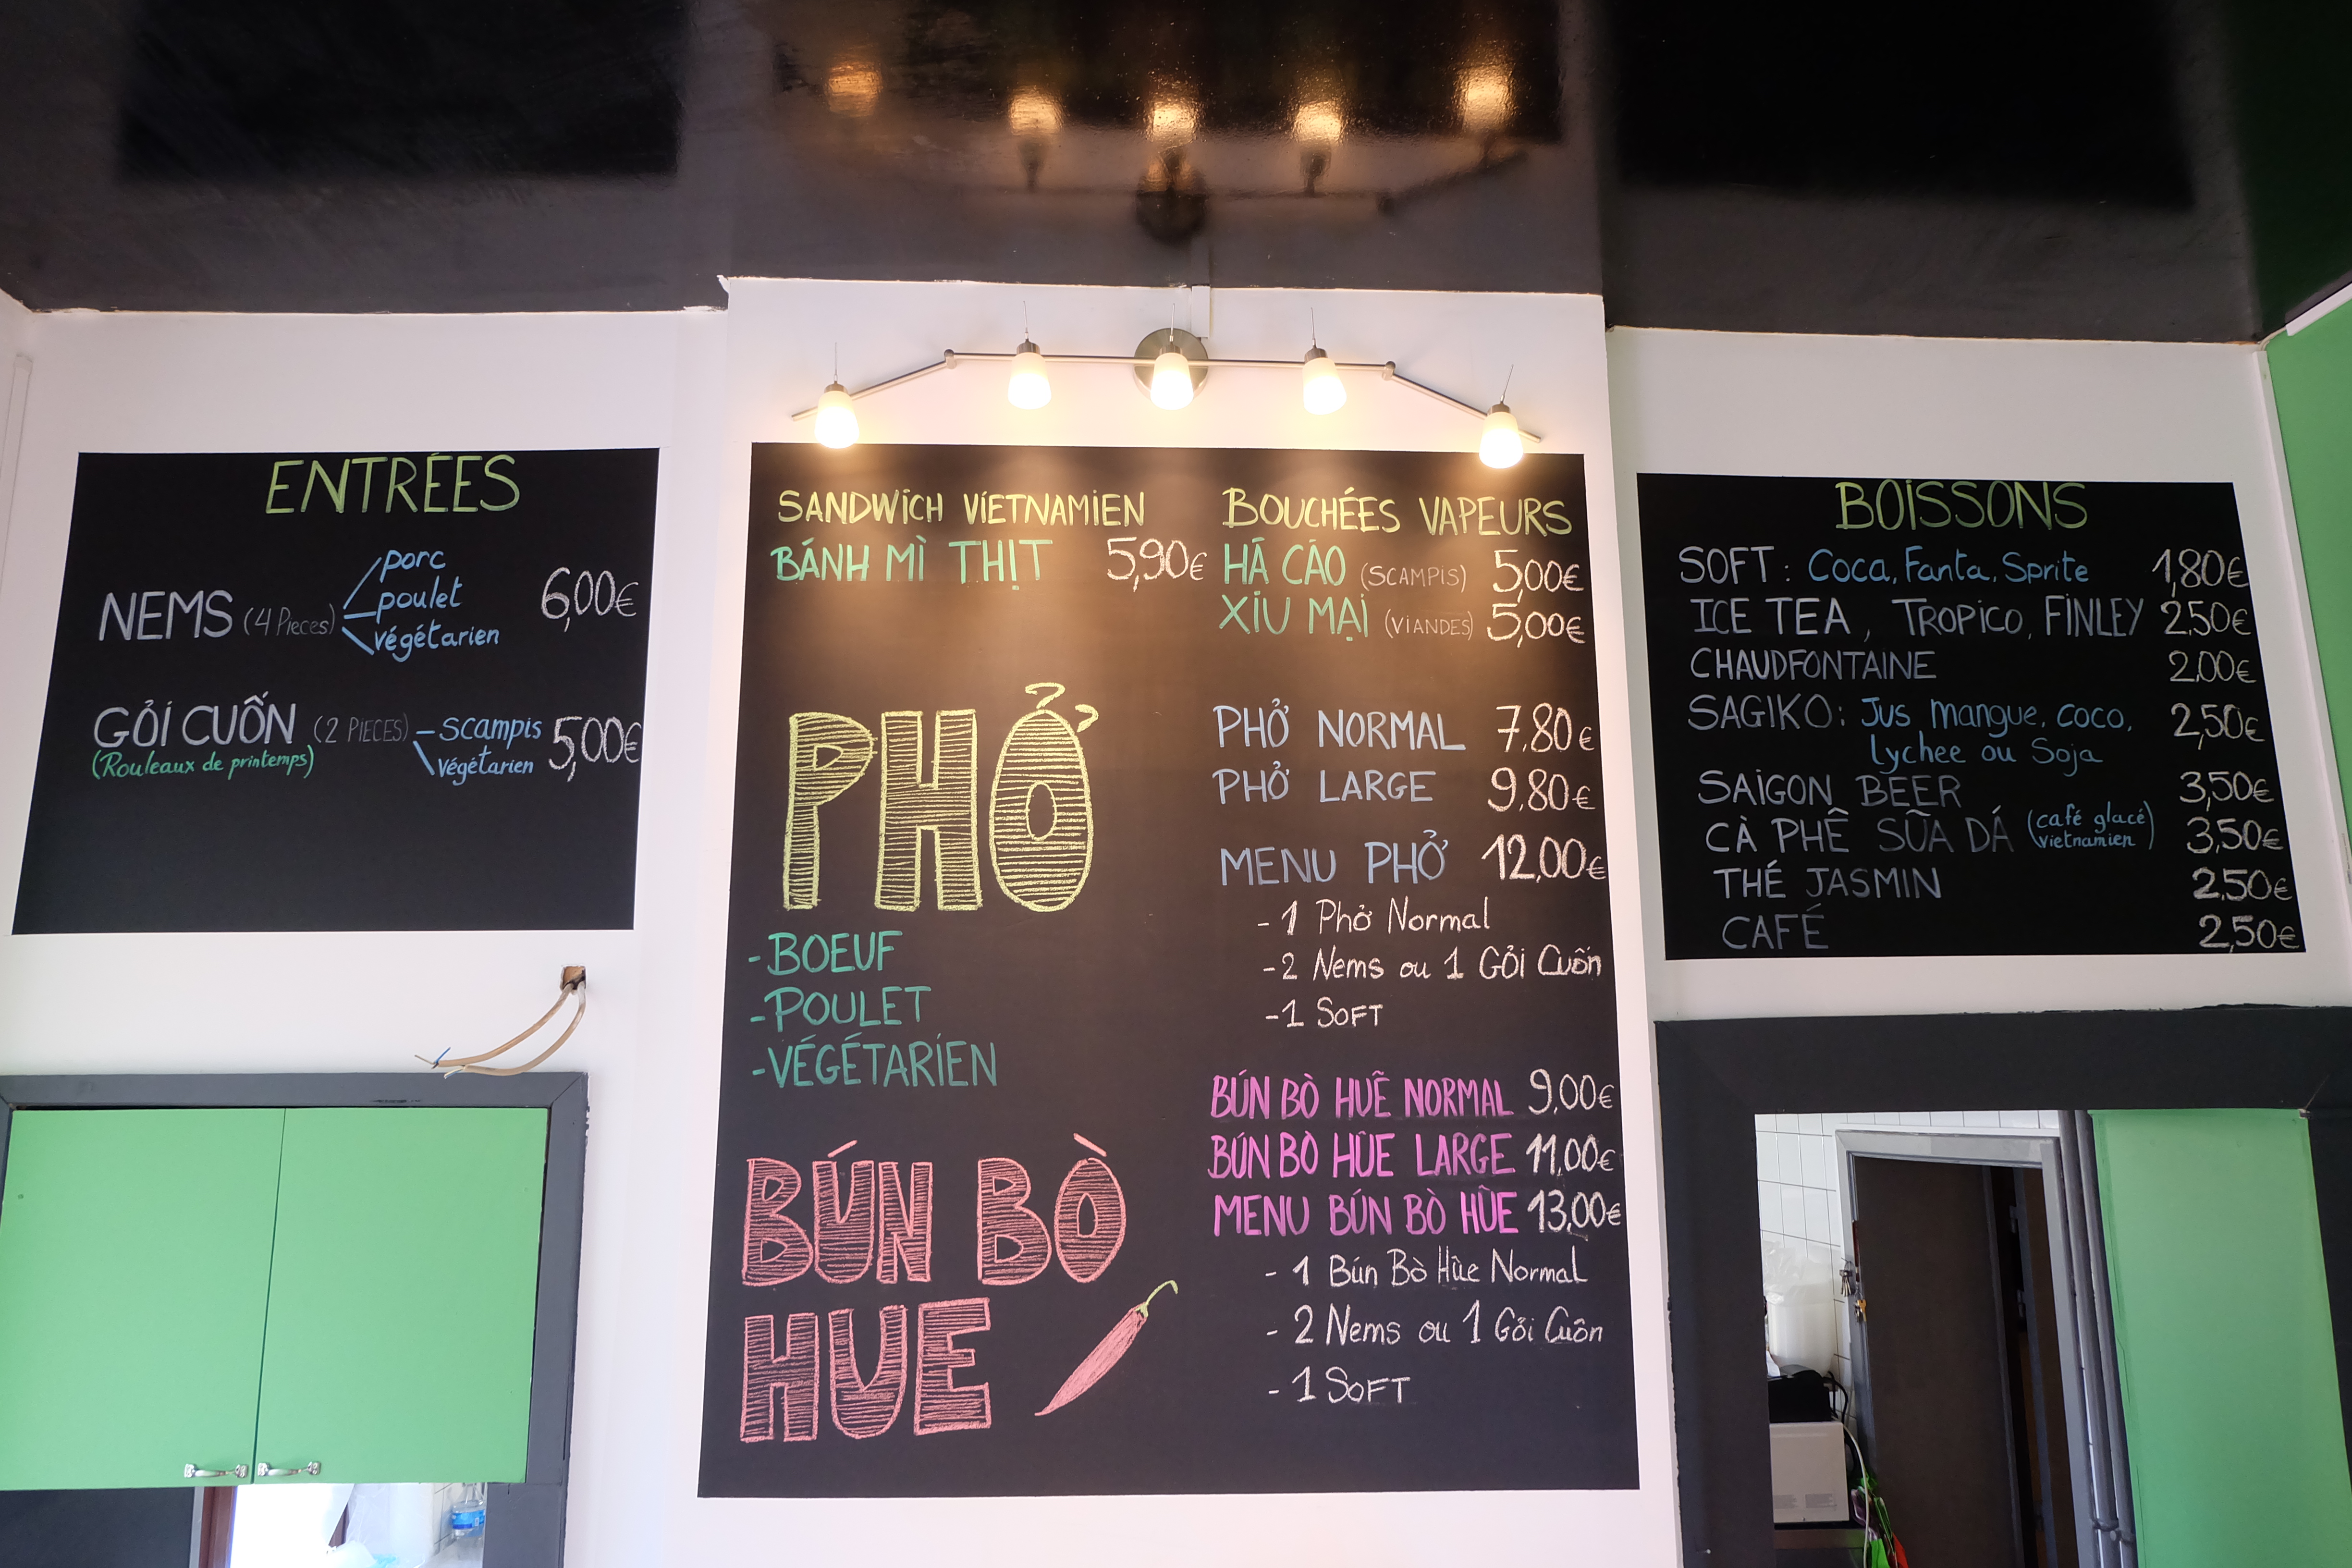 ENTRÉES
NEMS (4 Pieces) porc 6,00€
poulet
végétarien
GỎI CUỐN (2 PIECES) - scampis 5,00€
(Rouleaux de printemps) végétarien
SANDWICH VIETNAMIEN
BÁNH MÌ THỊT 5,90€
BOUCHÉES VAPEURS
HÁ CÁO (SCAMPIS) 5,00€
XIU MẠI (VIANDES) 5,00€
PHỞ
- BOEUF
- POULET
- VÉGÉTARIEN
PHỞ NORMAL 7,80€
PHỞ LARGE 9,80€
MENU PHỞ 12,00€
- 1 Phở Normal
- 2 Nems ou 1 Gỏi Cuốn
- 1 SOFT
BÚN BÒ
HUE
BÚN BÒ HUẼ NORMAL 9,00€
BÚN BÒ HÛE LARGE 11,00€
MENU BÚN BÒ HÛE 13,00€
- 1 Bún Bò Hûe Normal
- 2 Nems ou 1 Gỏi Cuôn
- 1 SOFT
BOISSONS
SOFT : Coca, Fanta, Sprite 1,80€
ICE TEA, TROPICO, FINLEY 2,50€
CHAUDFONTAINE 2,00€
SAGIKO : Jus mangue, coco, 2,50€
lychee ou Soja
SAIGON BEER 3,50€
CÀ PHÊ SŨA DÁ (café glacé vietnamien) 3,50€
THÉ JASMIN 2,50€
CAFÉ 2,50€